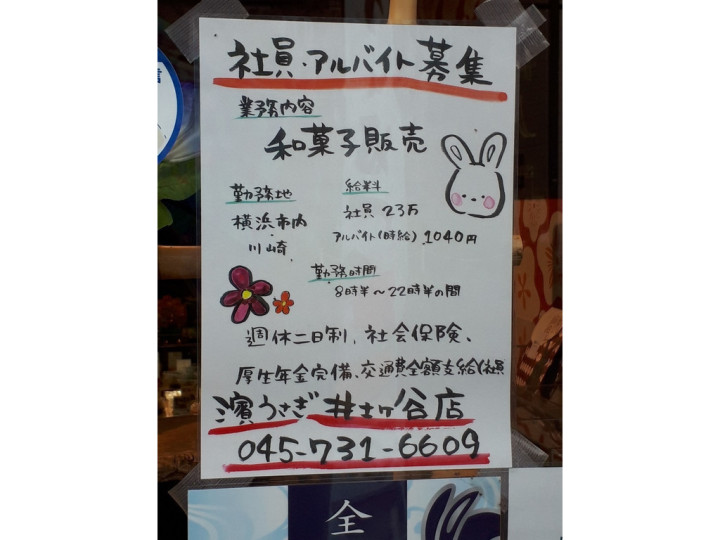 社員・アルバイト募集
業務内容
和菓子販売
勤務地
横浜市内
・
川崎
給料
社員 23万
アルバイト(時給) 1040円
勤務時間
8時半〜22時半の間
週休二日制、社会保険、
厚生年金完備、交通費全額支給(社員
濱うさぎ 井土ヶ谷店
045-731-6609
全